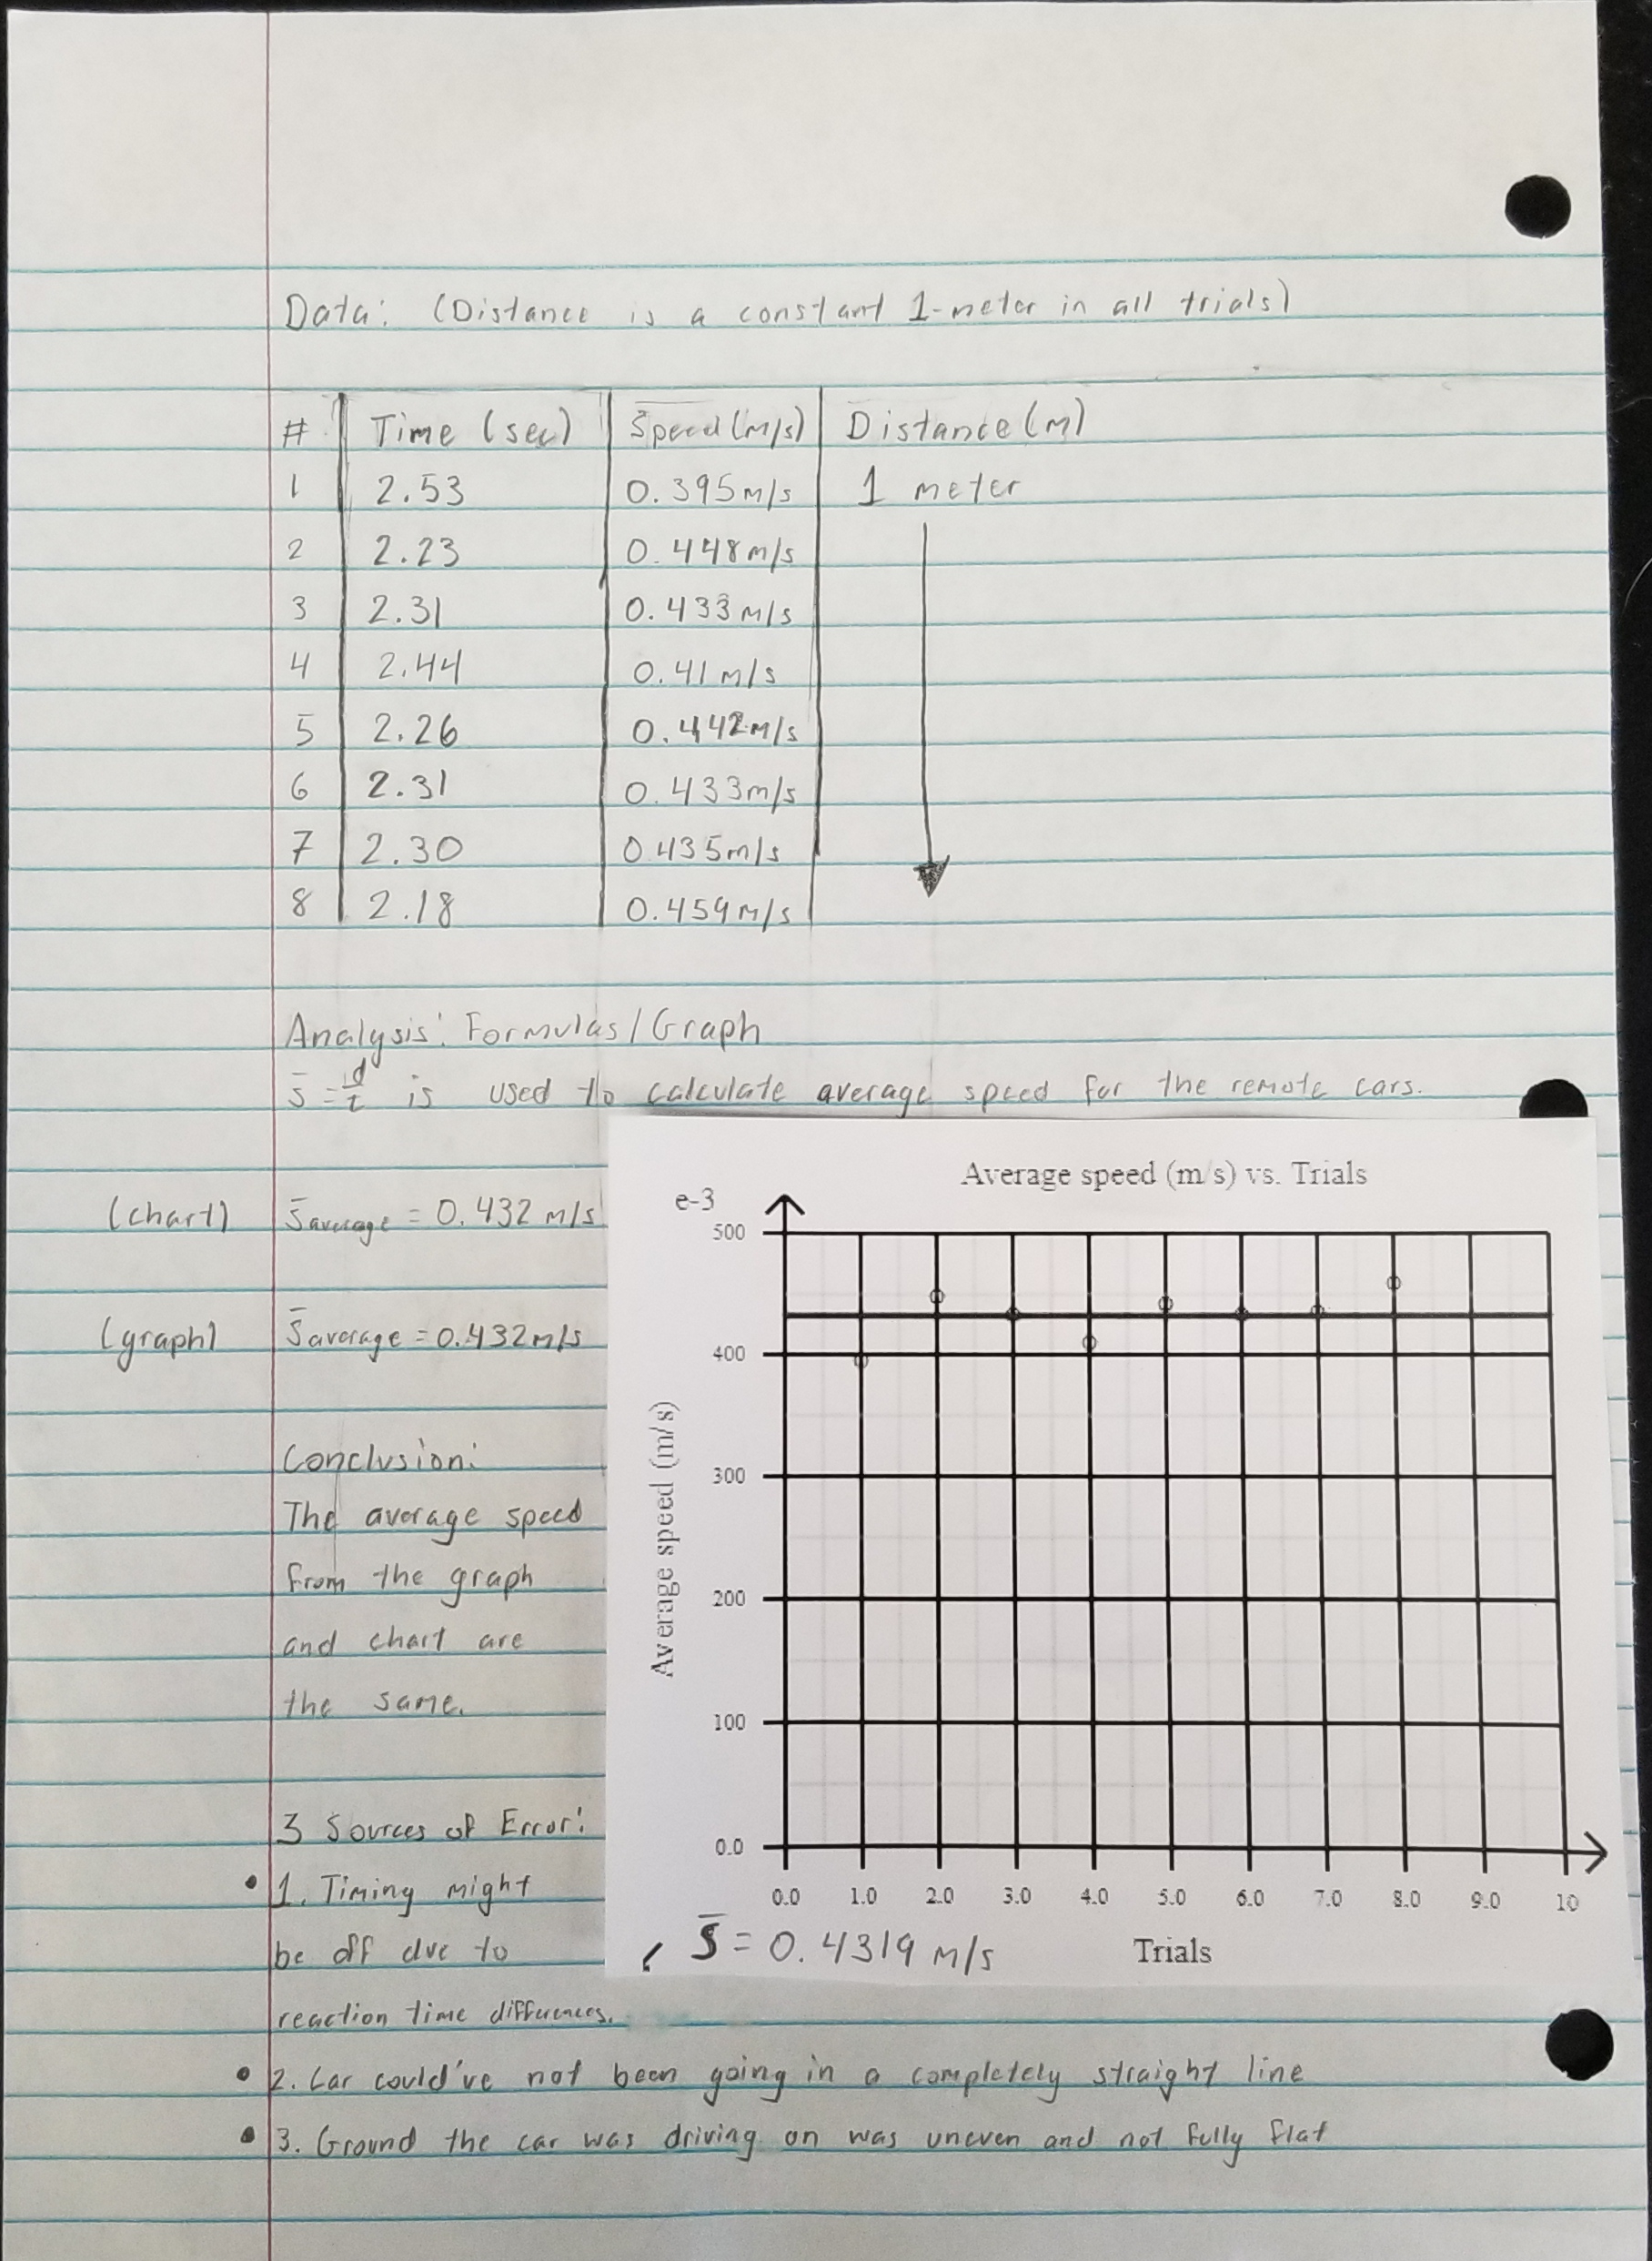 Data: (Distance is a constant 1-meter in all trials)
# Time (sec) Speed (m/s) Distance (m)
1 2.53 0.395 m/s 1 meter
2 2.23 0.448 m/s
3 2.31 0.433 m/s
4 2.44 0.41 m/s
5 2.26 0.442 m/s
6 2.31 0.433 m/s
7 2.30 0.435 m/s
8 2.18 0.459 m/s
Analysis: Formulas/Graph
s̄ = d/t is used to calculate average speed for the remote cars.
(chart) s̄ average = 0.432 m/s
(graph) s̄ average = 0.432 m/s
Conclusion:
The average speed
from the graph
and chart are
the same.
3 Sources of Error:
• 1. Timing might
be off due to
reaction time differences.
• 2. Car could've not been going in a completely straight line
• 3. Ground the car was driving on was uneven and not fully flat
Average speed (m/s) vs. Trials
e-3
500
400
300
200
100
0.0
Average speed (m/s)
0.0 1.0 2.0 3.0 4.0 5.0 6.0 7.0 8.0 9.0 10
s̄ = 0.4319 m/s
Trials